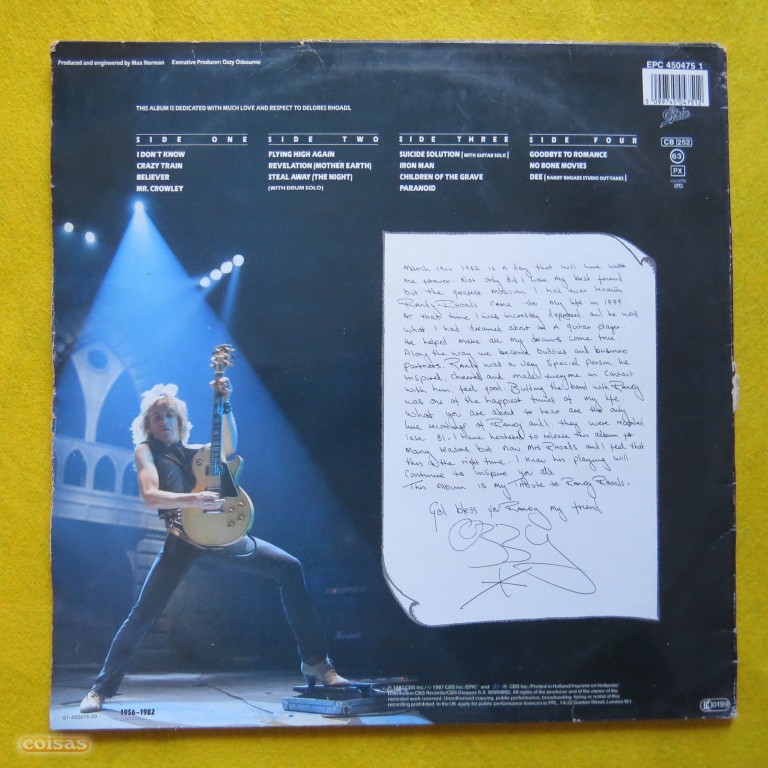 Produced and engineered by Max Norman Executive Producer: Ozzy Osbourne
EPC 450475 1
5 099745 047517
Epic
CB 252
63
PX
THIS ALBUM IS DEDICATED WITH MUCH LOVE AND RESPECT TO DELORES RHOADS.
SIDE ONE
I DON'T KNOW
CRAZY TRAIN
BELIEVER
MR. CROWLEY
SIDE TWO
FLYING HIGH AGAIN
REVELATION (MOTHER EARTH)
STEAL AWAY (THE NIGHT)
(WITH DRUM SOLO)
SIDE THREE
SUICIDE SOLUTION (WITH GUITAR SOLO)
IRON MAN
CHILDREN OF THE GRAVE
PARANOID
SIDE FOUR
GOODBYE TO ROMANCE
NO BONE MOVIES
DEE (RANDY RHOADS STUDIO OUT-TAKES)
March 19th 1982 is A day that will live with
me forever. Not only did I lose my best friend
but the greatest musician I had ever known
Randy Rhoads came into my life in 1979.
At that time I was incredibly depressed and he was
what I had dreamed about in A guitar player.
He helped make all my dreams come true.
Along the way we became buddies and business
partners. Randy was a very special person, he
inspired, cheered and made everyone in contact
with him feel good. Building the band with Randy
was one of the happiest times of my life.
What you are about to hear are the only
live recordings of Randy and I, they were recorded
late 81. I have hesitated to release this album for
many reasons, but now Mrs Rhoads and I feel that
this is the right time. I know his playing will
continue to inspire you all.
This Album is my Tribute to Randy Rhoads.
God bless you Randy my friend
Ozzy
1956-1982
01-450475-20
CBS Inc./Printed in Holland/Imprimé en Hollande/
Distribution CBS Records/CBS Disques S.A. WARNING: All rights of the producer and of the owner of the
recorded work reserved. Unauthorised copying, public performance, broadcasting, hiring or rental of this
recording prohibited. In the UK apply for public performance licences to PPL, 14/22 Ganton Street, London W1.
0199
coisas